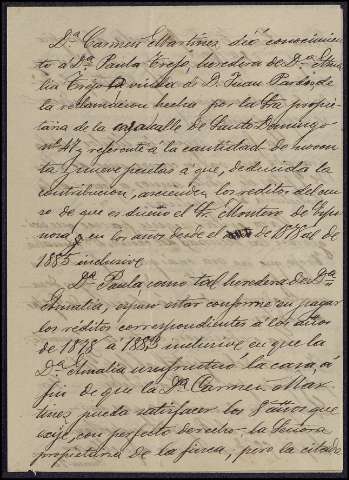 Dª Carmen Martinez dió conocimien-
to á Dª Paula Trejo, heredera de Dª Ama-
lia Trejo viuda de D. Juan Pardo, de
la reclamacion hecha por la Sra propie-
taria de la casa calle de Santo Domingo
nº 47, referente á la cantidad de noven-
ta y nueve pesetas á que, deducida la
contribucion, ascienden los réditos del cen-
so de que es dueño el Sr. Montero de Espi-
nosa, en los años desde el de 1878 al de
1885 inclusive.
Dª Paula como tal heredera de Dª
Amalia, estar conforme en pagar
los réditos correspondientes á los años
de 1878 á 1883 inclusive en que la
Dª Amalia usufructuó la casa, á
fin de que la Dª Carmen Mar-
tinez pueda satisfacer los 8 años que
exije, con perfecto derecho, la Señora
propietaria de la finca, pero la citada